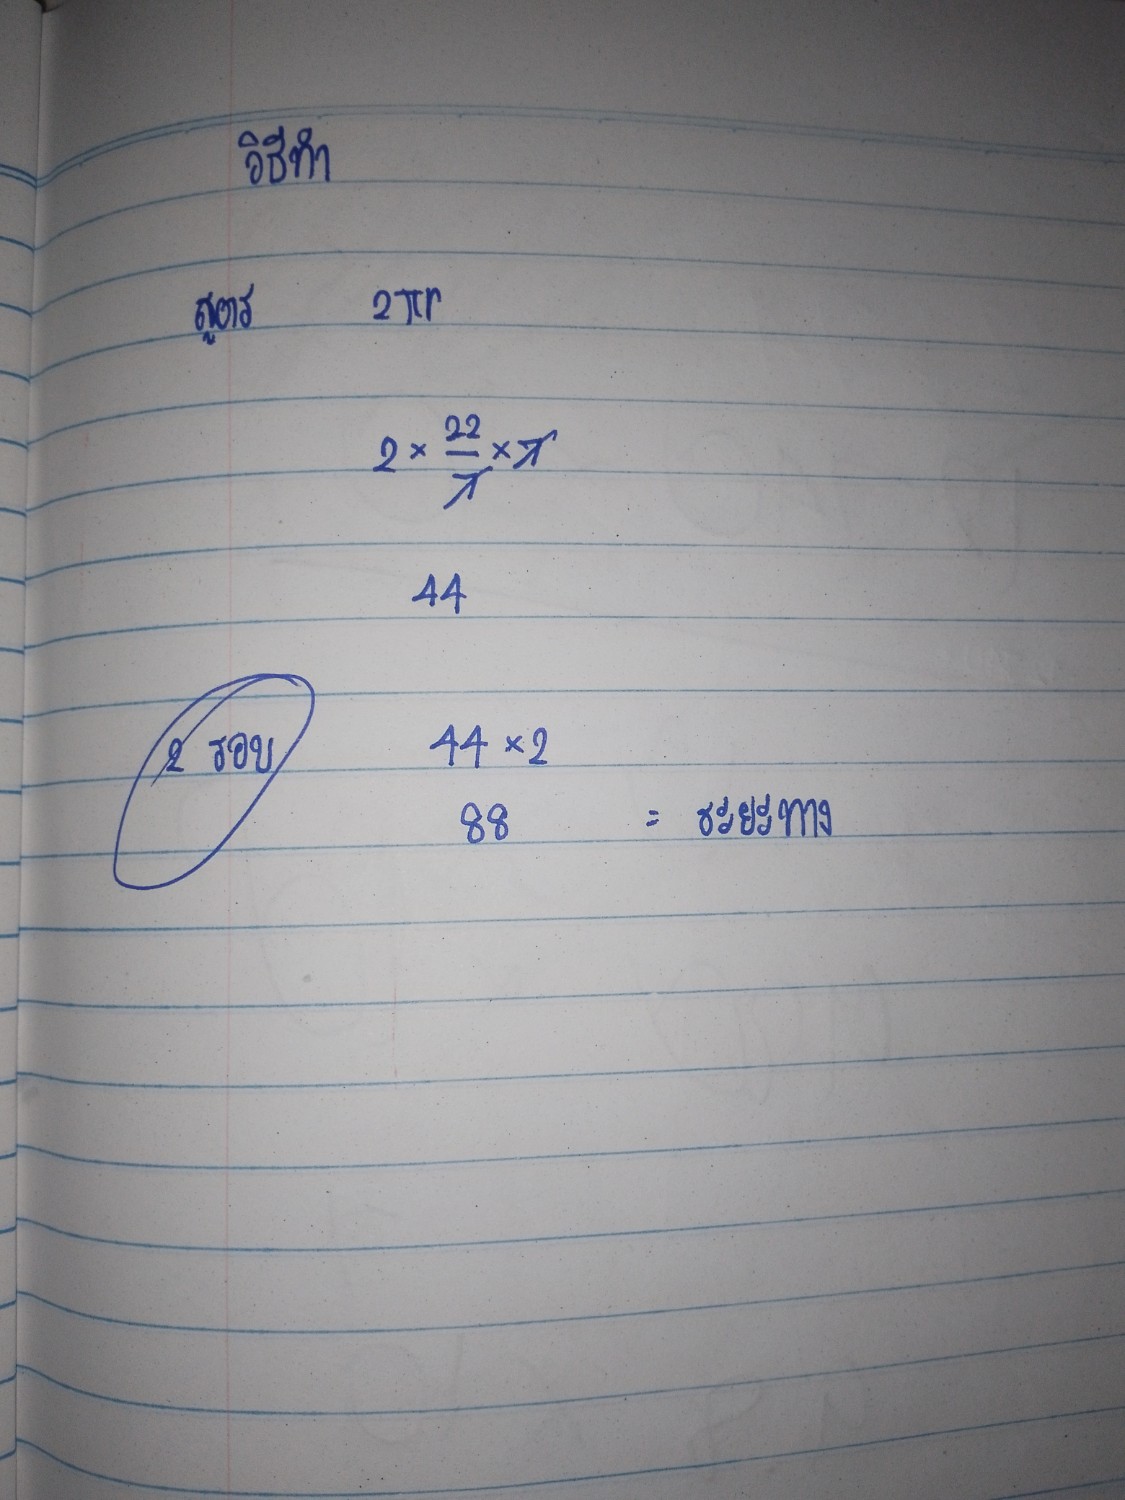 วิธีทำ
สูตร 2πr
2 × 22/7 × 7
44
2 รอบ 44 × 2
88 = ระยะทาง